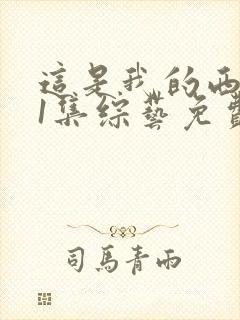 這是我的西
1集綜藝免費
司馬青雨